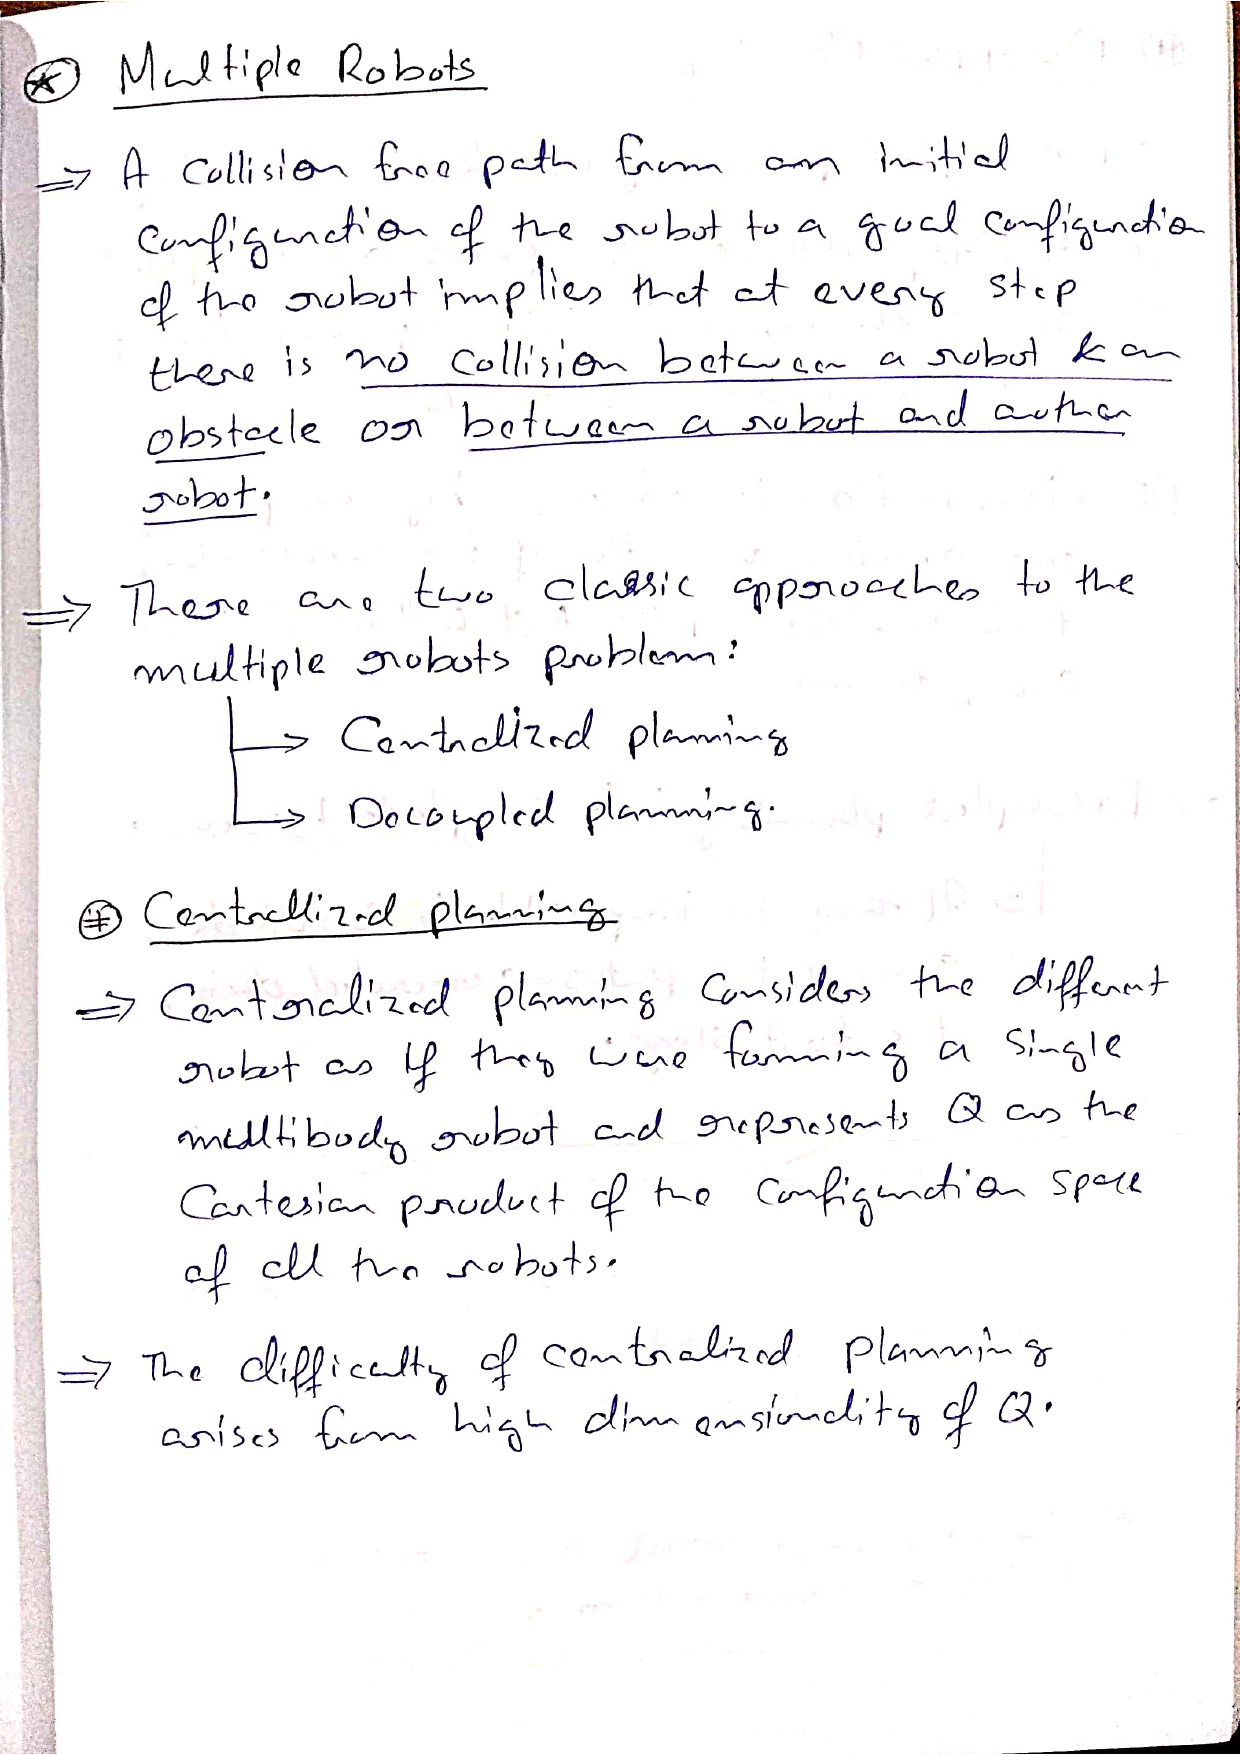 Multiple Robots
⇒ A collision free path from an initial
configuration of the robot to a goal configuration
of the robot implies that at every step
there is no collision between a robot & an
obstacle or between a robot and auther
robot.
⇒ There are two classic approaches to the
multiple robots problem:
→ Centralized planning
→ Decoupled planning.
Centrallized planning
⇒ Centralized planning considers the different
robot as if they were forming a single
multibody robot and represents Q as the
Cartesian product of the configuration space
of all the robots.
⇒ The difficulty of centralized planning
arises from high dimensionality of Q.